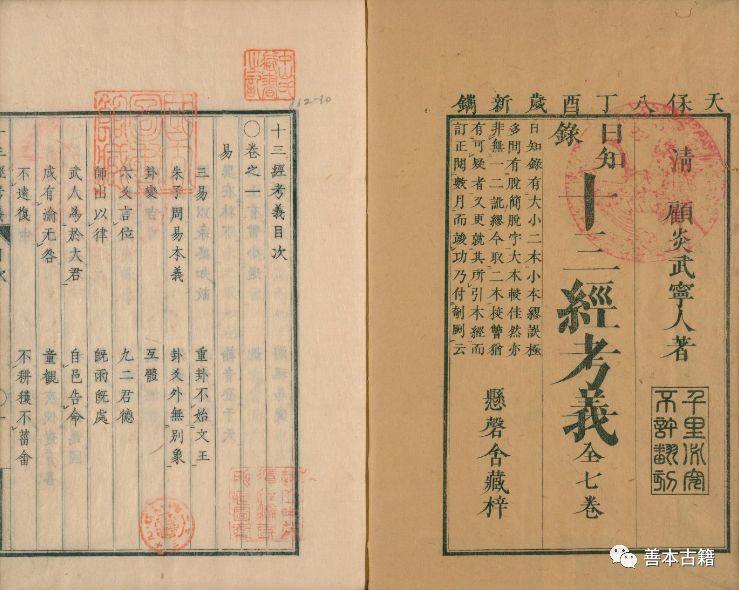 天保八丁酉歲新鐫
清 顧炎武寧人著
千里必究
不許翻刻
日知錄
十三經考義 全七卷
日知錄有大小二本小本繆誤極
多間有脫簡脫字大本較佳然亦
非無一二訛繆今取二本挍讐猶
有可疑者又更就其所引本經而
訂正閱數月而竣功乃付剞劂云
懸磬舍藏梓
12-30
十三經考義目次
〇卷之一
易
三易 重卦不始文王
朱子周易本義 卦爻外無別象
卦變 互體
六爻言位 九二君德
師出以律 旣雨旣處
武人為於大君 自邑告命
成有渝无咎 童觀
不遠復 不耕穫不菑畬
善本古籍